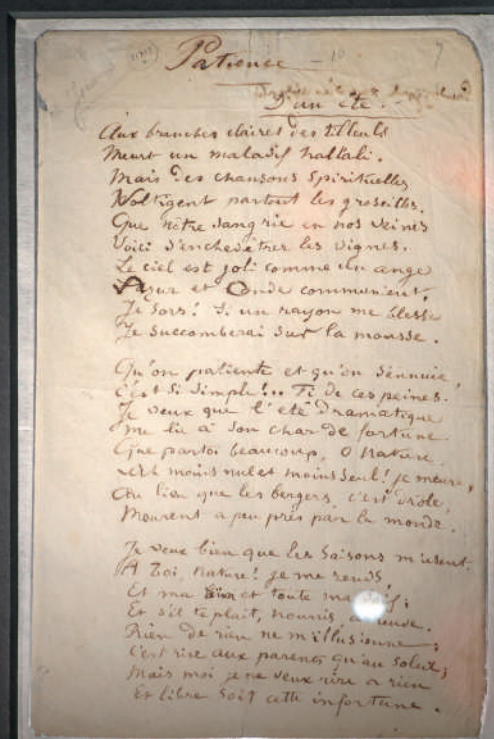 Patience
D'un été.
Aux branches claires des tilleuls
Meurt un maladif hallali.
Mais des chansons spirituelles
Voltigent partout les groseilles.
Que notre sang rie en nos veines
Voici s'enchevêtrer les vignes.
Le ciel est joli comme un ange
Azur et Onde communient,
Je sors! Si un rayon me blesse
Je succomberai sur la mousse.
Qu'on patiente et qu'on s'ennuie,
C'est si simple!.. Fi de ces peines.
Je veux que l'été dramatique
Me lie à son char de fortune.
Que par toi beaucoup, O Nature,
Ah moins nul et moins seul! je meure,
Au lieu que les bergers, c'est drôle,
Meurent à peu près par le monde.
Je veux bien que les saisons m'usent.
A Toi, Nature! je me rends,
Et ma faim et toute ma soif;
Et s'il te plaît, nourris, abreuve.
Rien de rien ne m'illusionne;
C'est rire aux parents qu'au soleil;
Mais moi je ne veux rire à rien
Et libre soit cette infortune.